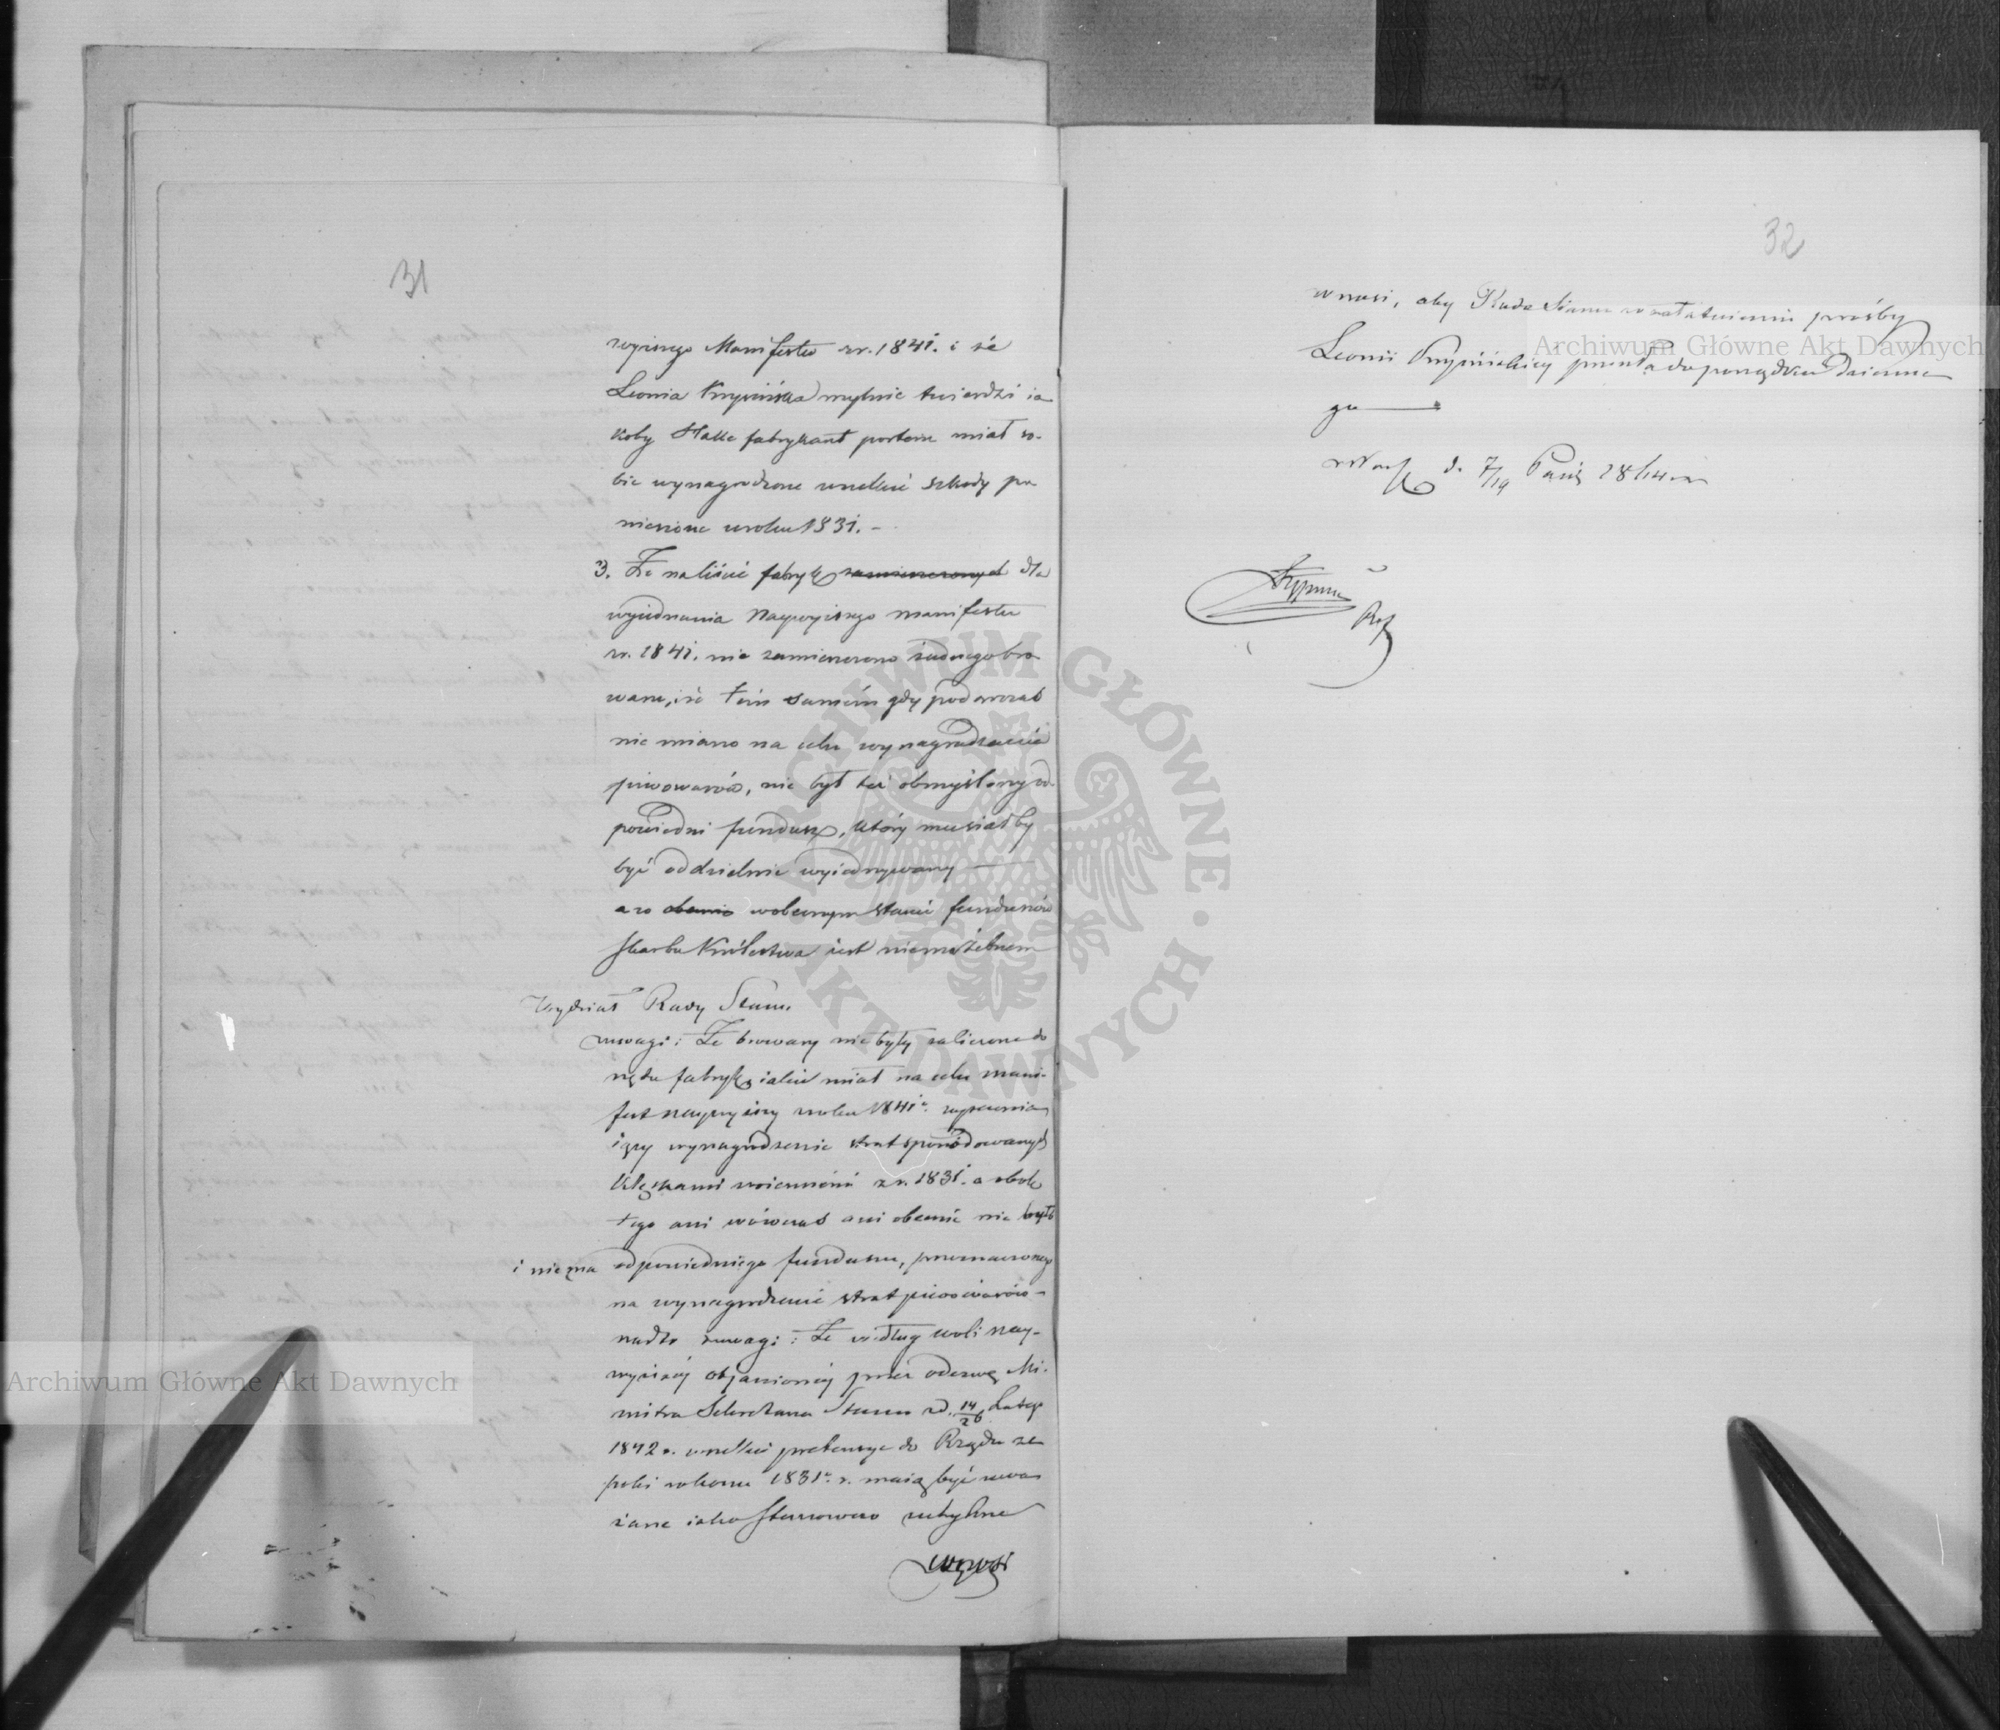 31
wyższego Manifestu z r. 1841. i że
Leonia Krysińska mylnie twierdzi ia
koby Halle fabrykant porteru miał so-
bie wynagrodzone wszelkie szkody po
niesione w roku 1831. –
3. Że na liście fabryk zamieszczonych dla
wyjednania Naywyższego manifestu
z r. 1841. nie zamieszczono żadnego bro
waru, i że tém samém gdy podówczas
nie miano na celu wynagrodzenie
piwowarów, nie był też obmyślony od-
powiedni fundusz, który musiałby
być oddzielnie wyiednywany —
a co obecnie w obecnym stanie funduszów
Skarbu Królestwa iest niemożebnem
Wydział Rady Stanu
zważ: Że browary nie były zaliczone do
rzędu fabryk, iakie miał na celu mani-
fest naywyższy w roku 1841. zapewnia
iący wynagrodzenie strat spowodowanych
klęskami woiennémi z r. 1831. a obok
tego ani wówczas ani obecnie nie było
i nie ma odpowiedniego funduszu, przeznaczonego
na wynagrodzenie strat piwowarów –
nadto zważ: Że według woli nay-
wyższéj objawionéj przez odezwę Mi-
nistra Sekretarza Stanu z d. 14/26 Lutego
1842 r. wszelkie pretensye do Rządu ze
roku 1831. r. maią być uwa
żane iako stanowczo uchylone
wnosi
32
wnosi, aby Rada Stanu w załatwieniu prośby
Leonii Krysińskiey przeszła do porządku dzienne
go —
w Warsz d. 7/19 Paźź 1864 r.
Ref
Archiwum Główne Akt Dawnych
Archiwum Główne Akt Dawnych
ARCHIWUM GŁÓWNE · AKT DAWNYCH ·